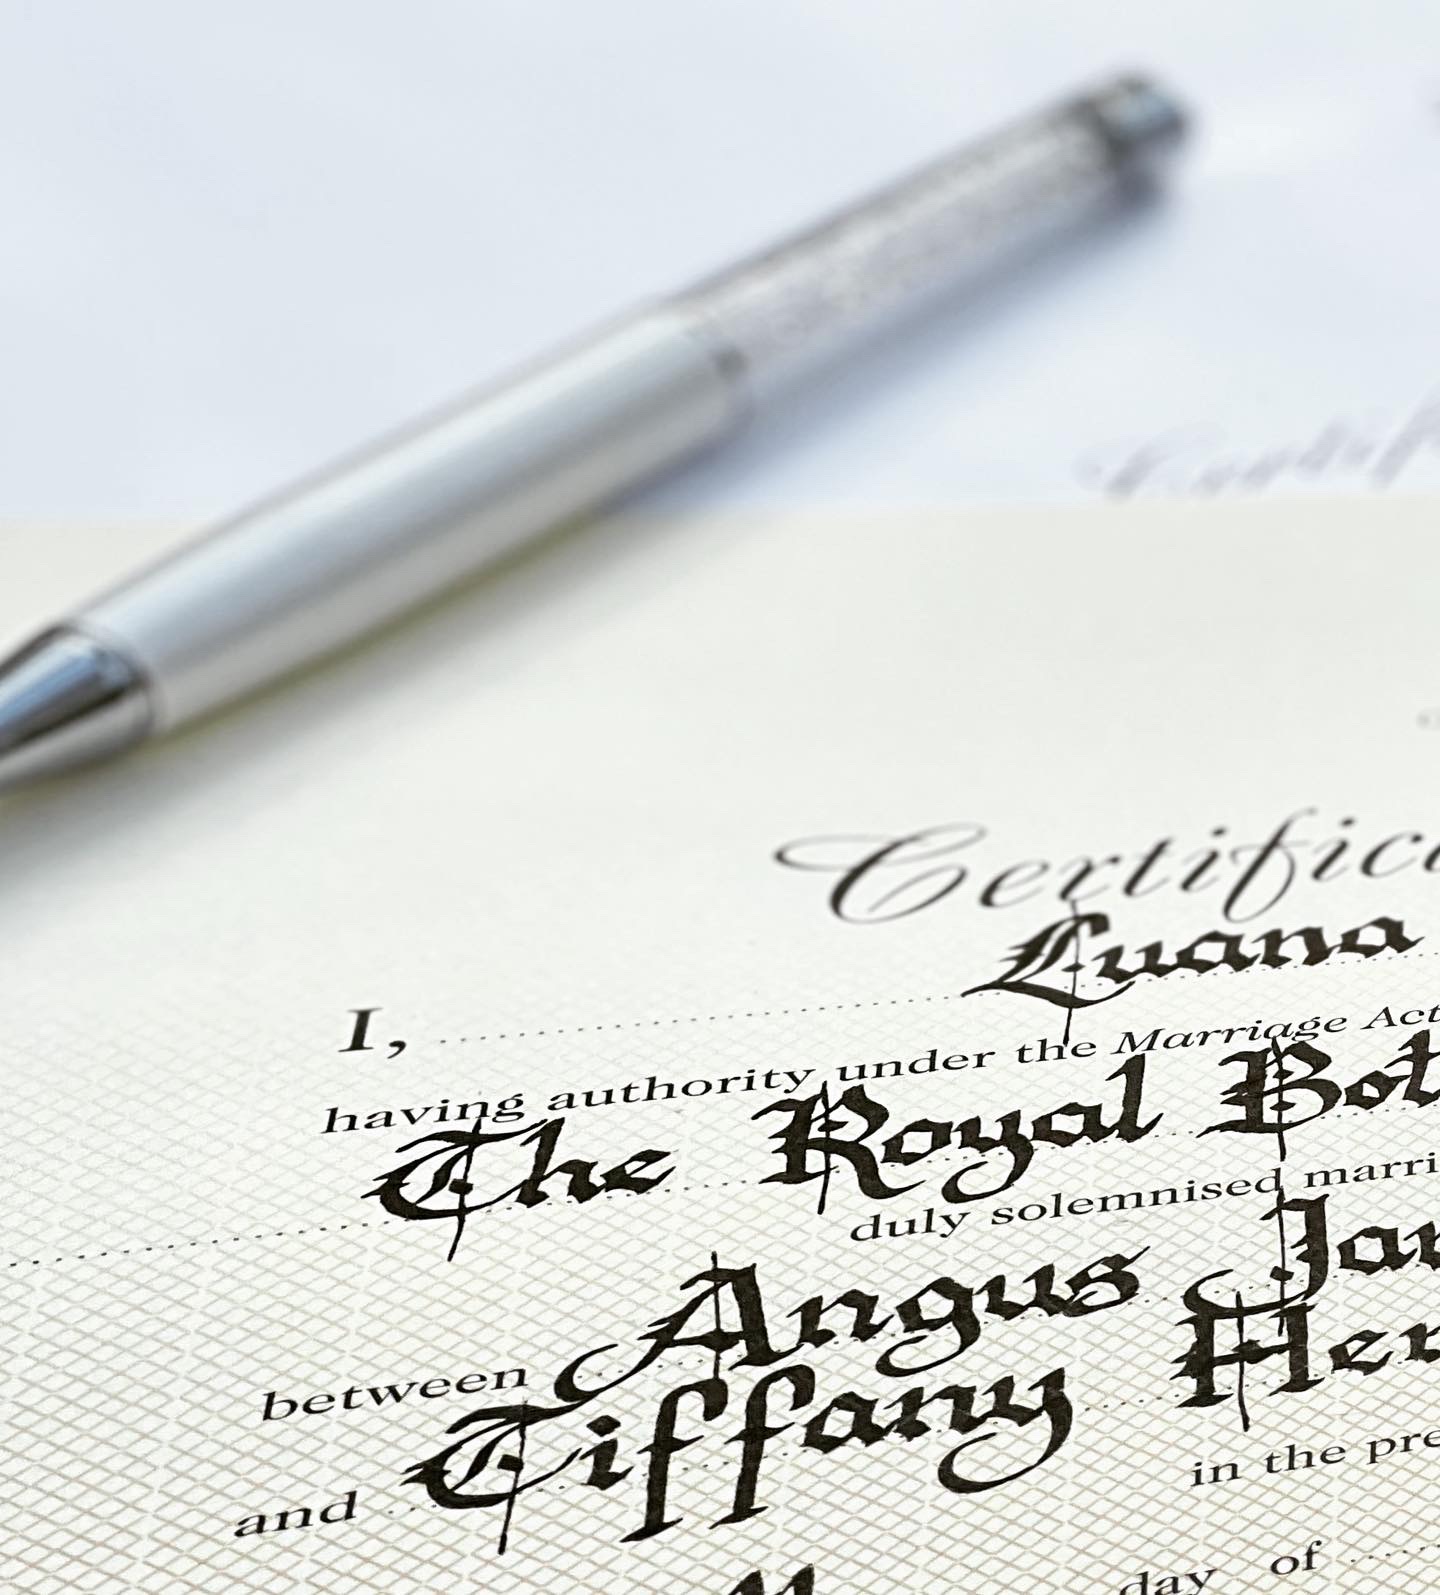 Certific
I, Luana
having authority under the Marriage Act
The Royal Bot
duly solemnised marri
between Angus Jan
and Tiffany Hen
in the pre
day of